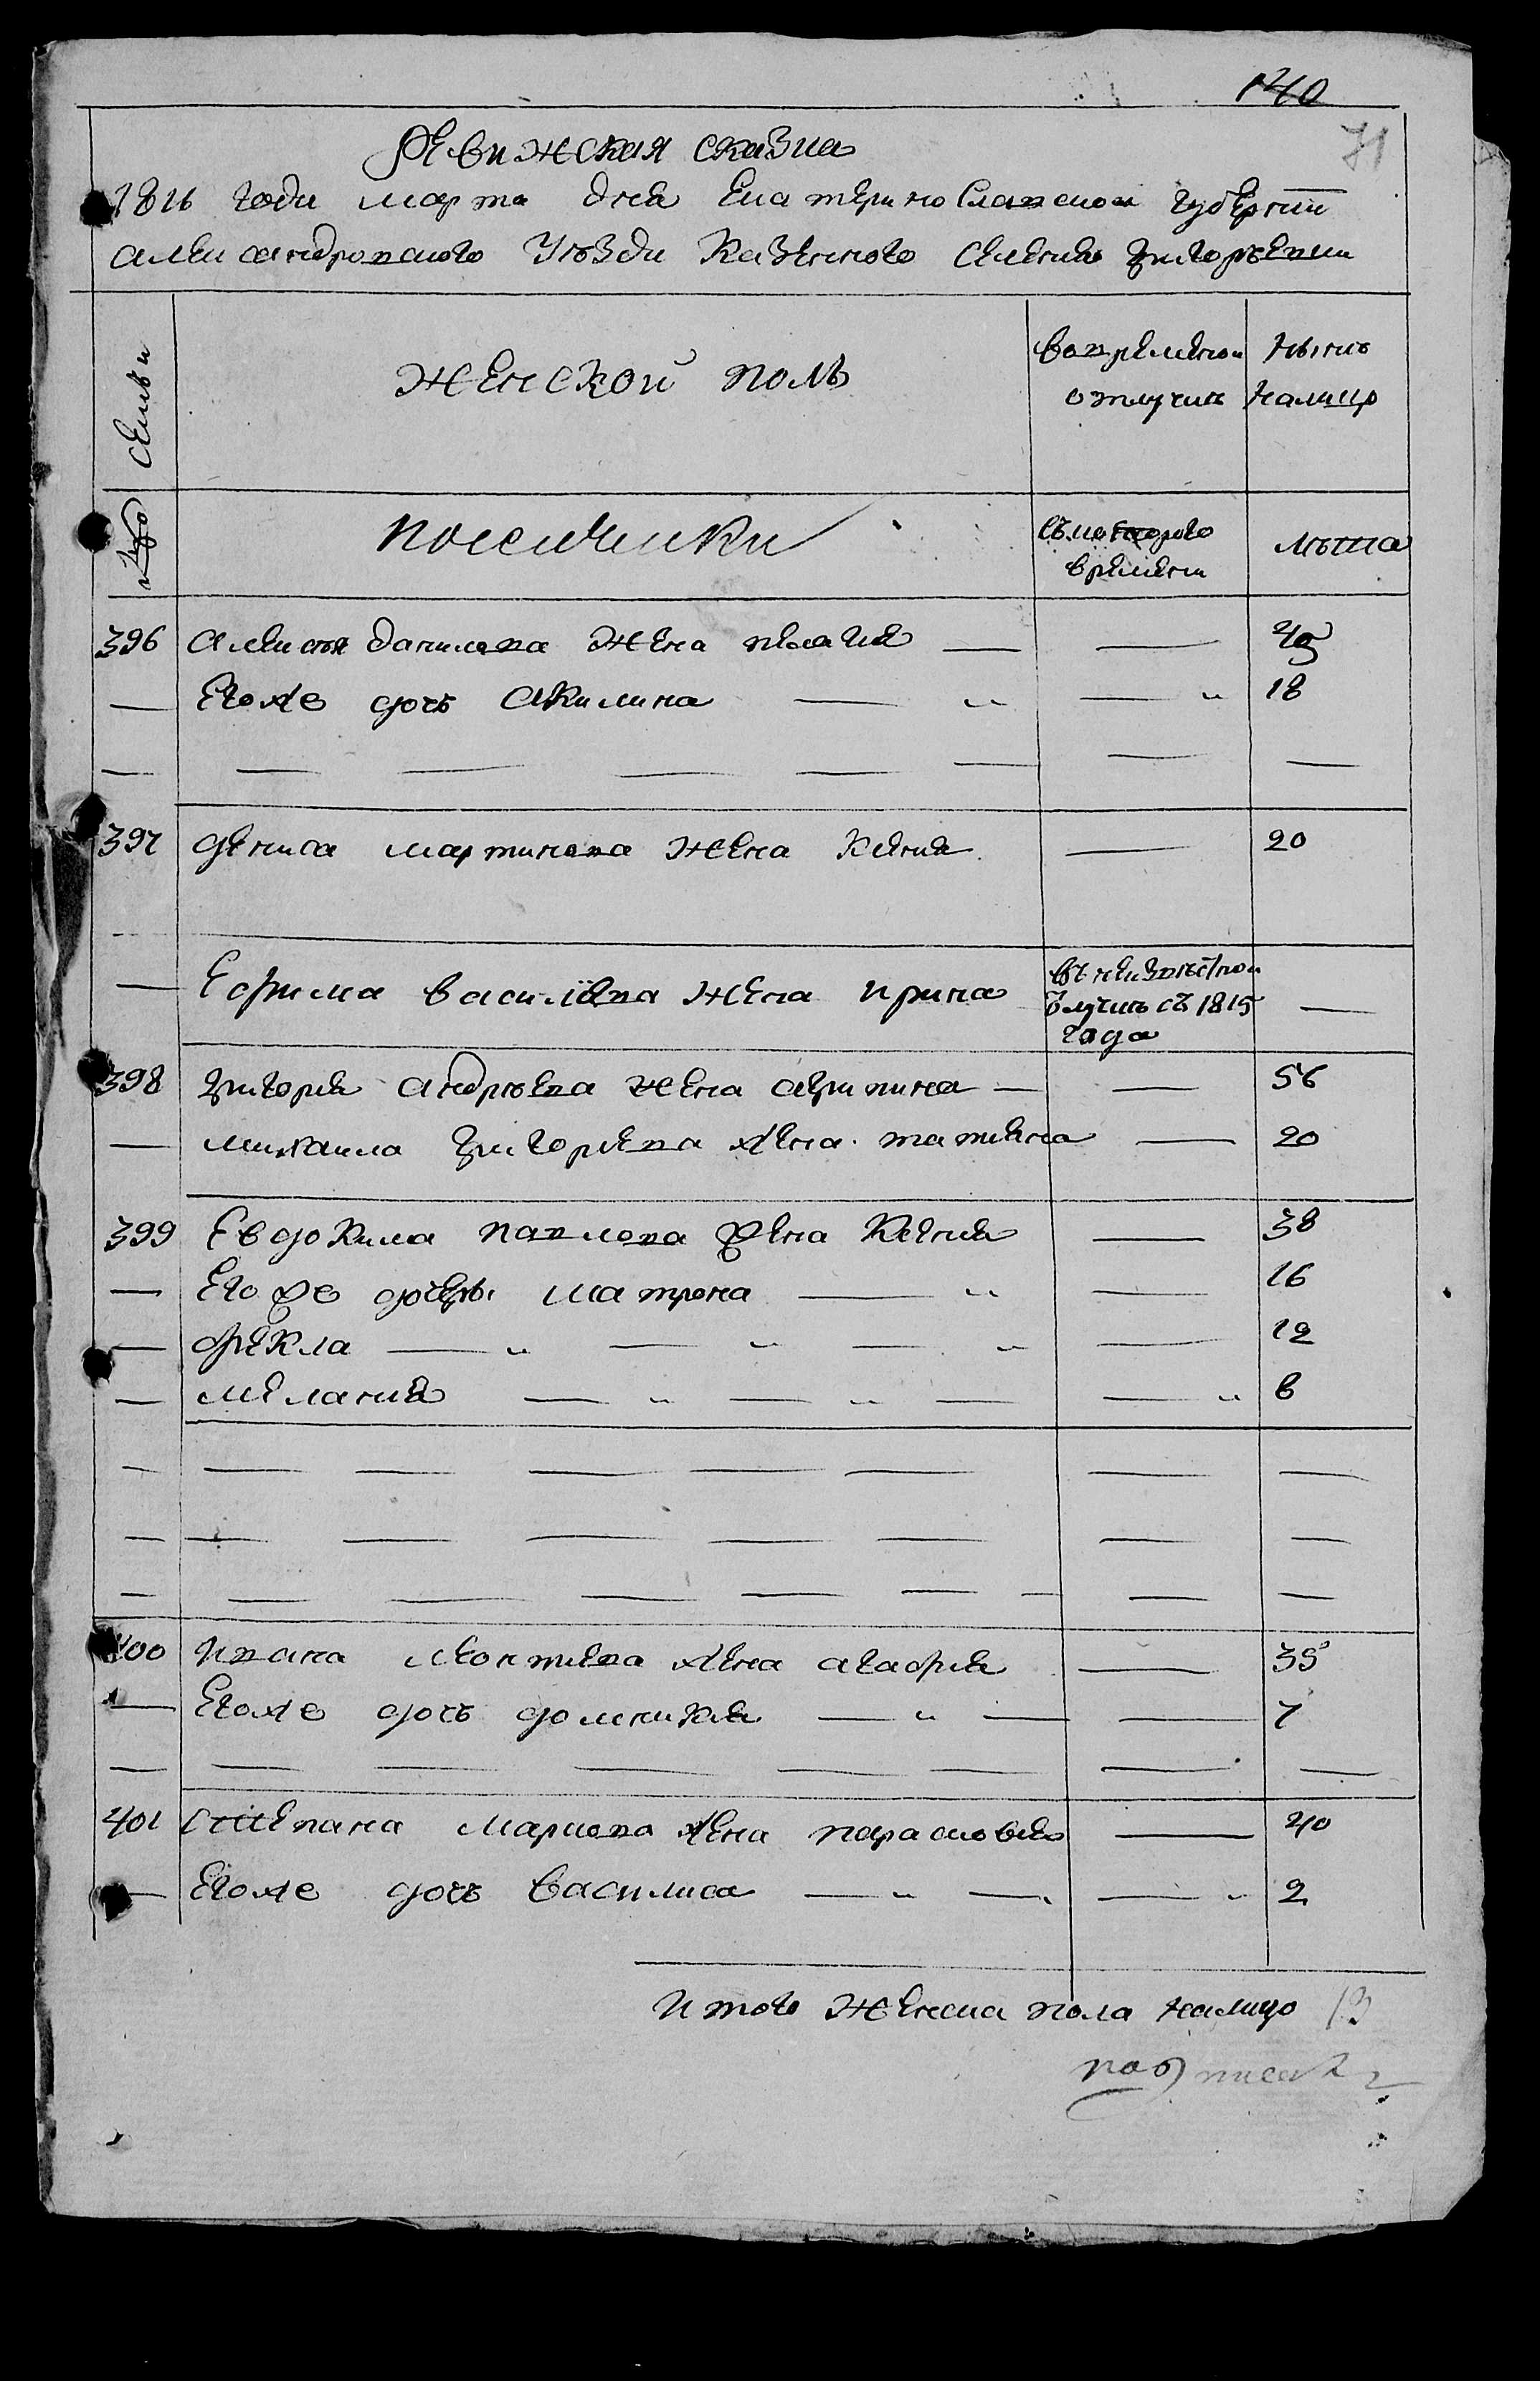 140
71
Ревижская сказка
1816 года марта дня Екатеринославской губернии
Александровского Уѣзда Казенного Селения Григорьевки
Семьи
Женской полъ
Вовременной отлучкѣ
Нынѣ налицо
№
Съ которого времени
Лѣта
396 Алексѣя Данилова жена пелагия — — 45
— Егоже дочь Акилина — „ — „ 18
— — — — — — — —
397 Дениса Мартинова жена Ксения — 20
— Ефима Василiева жена ирина Въ неизвѣстной отлучкѣ съ 1815 года —
398 Григория Андрѣева жена агрипина — — 56
— Михаила Григорьева жена татиена — 20
399 Евдокима павлова жена Ксения — 38
— Егоже дочери матрона — „ — 16
— фекла — „ — „ — „ — 12
— мелания — „ — „ — — „ 8
— — — — — — — —
— — — — — — — —
— — — — — — — —
400 Ивана Леонтиева жена агафия — 35
— Егоже дочь домникия — „ — — 7
— — — — — — — —
401 Степана Маркова жена парасковея — 40
— Егоже дочь Василиса — „ — — „ 2
Итого женска пола налицо 13